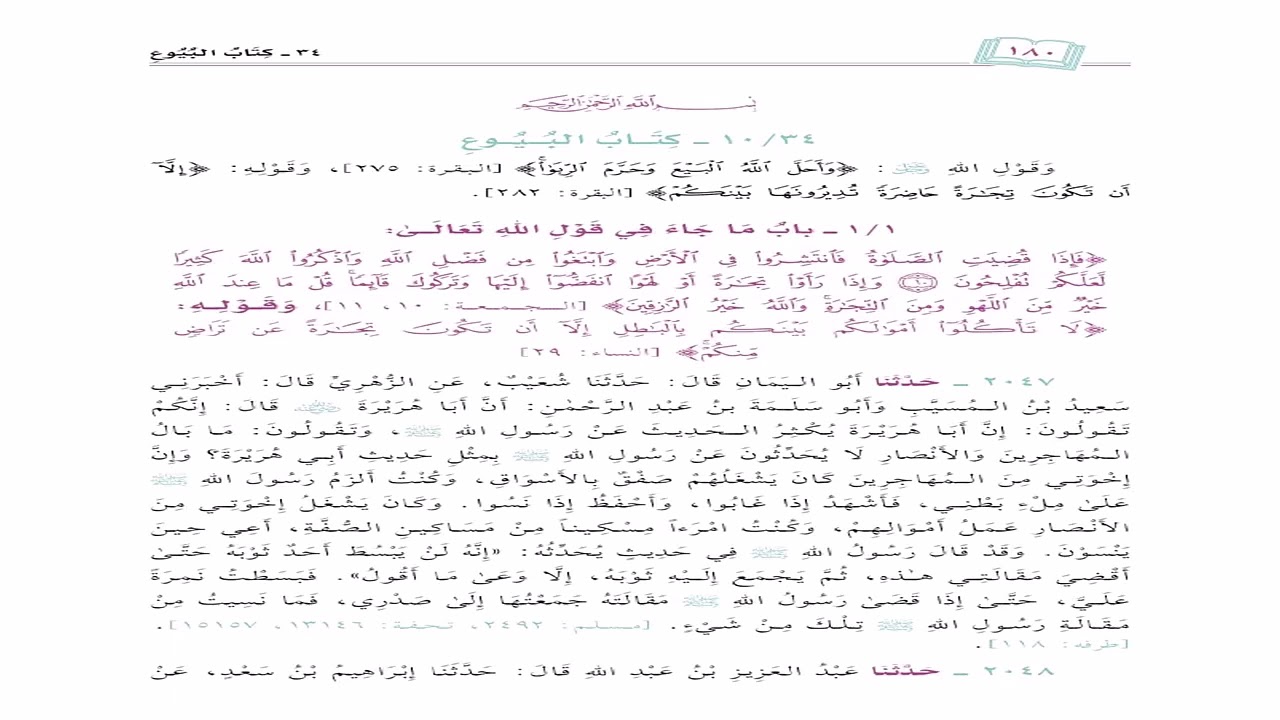 ١٨٠
٣٤ - كِتَابُ البُيُوعِ
بِسْمِ ٱللَّهِ ٱلرَّحْمَٰنِ ٱلرَّحِيمِ
١٠/٣٤ - كِتَابُ البُيُوعِ
وَقَوْلِ اللهِ ﷿: ﴿وَأَحَلَّ ٱللَّهُ ٱلْبَيْعَ وَحَرَّمَ ٱلرِّبَوٰا۟ۚ﴾ [البقرة: ٢٧٥]، وَقَوْلِهِ: ﴿إِلَّآ
أَن تَكُونَ تِجَٰرَةً حَاضِرَةً تُدِيرُونَهَا بَيْنَكُمْ﴾ [البقرة: ٢٨٢].
١/١ - بابُ مَا جَاءَ فِي قَوْلِ اللهِ تَعَالَىٰ:
﴿فَإِذَا قُضِيَتِ ٱلصَّلَوٰةُ فَٱنتَشِرُوا۟ فِى ٱلْأَرْضِ وَٱبْتَغُوا۟ مِن فَضْلِ ٱللَّهِ وَٱذْكُرُوا۟ ٱللَّهَ كَثِيرًا
لَّعَلَّكُمْ تُفْلِحُونَ ۝١٠ وَإِذَا رَأَوْا۟ تِجَٰرَةً أَوْ لَهْوًا ٱنفَضُّوٓا۟ إِلَيْهَا وَتَرَكُوكَ قَآئِمًاۚ قُلْ مَا عِندَ ٱللَّهِ
خَيْرٌ مِّنَ ٱللَّهْوِ وَمِنَ ٱلتِّجَٰرَةِۚ وَٱللَّهُ خَيْرُ ٱلرَّٰزِقِينَ﴾ [الجمعة: ١٠، ١١]، وَقَوْلِهِ:
﴿لَا تَأْكُلُوٓا۟ أَمْوَٰلَكُم بَيْنَكُم بِٱلْبَٰطِلِ إِلَّآ أَن تَكُونَ تِجَٰرَةً عَن تَرَاضٍ
مِّنكُمْۚ﴾ [النساء: ٢٩]
٢٠٤٧ - حَدَّثَنَا أَبُو اليَمَانِ قَالَ: حَدَّثَنَا شُعَيْبٌ، عَنِ الزُّهْرِيِّ قَالَ: أَخْبَرَنِي
سَعِيدُ بْنُ المُسَيَّبِ وَأَبُو سَلَمَةَ بنُ عَبْدِ الرَّحْمٰنِ: أَنَّ أَبَا هُرَيْرَةَ ﵁ قَالَ: إِنَّكُمْ
تَقُولُونَ: إِنَّ أَبَا هُرَيْرَةَ يُكْثِرُ الحَدِيثَ عَنْ رَسُولِ اللهِ ﷺ، وَتَقُولُونَ: مَا بَالُ
المُهَاجِرِينَ وَالأَنْصَارِ لَا يُحَدِّثُونَ عَنْ رَسُولِ اللهِ ﷺ بِمِثْلِ حَدِيثِ أَبِي هُرَيْرَةَ؟ وَإِنَّ
إِخْوَتِي مِنَ المُهَاجِرِينَ كَانَ يَشْغَلُهُمْ صَفْقٌ بِالأَسْوَاقِ، وَكُنْتُ أَلزَمُ رَسُولَ اللهِ ﷺ
عَلَىٰ مِلْءِ بَطْنِي، فَأَشْهَدُ إِذَا غَابُوا، وَأَحْفَظُ إِذَا نَسُوا. وَكَانَ يَشْغَلُ إِخْوَتِي مِنَ
الأَنْصَارِ عَمَلُ أَمْوَالِهِمْ، وَكُنْتُ امْرَءاً مِسْكِيناً مِنْ مَسَاكِينِ الصُّفَّةِ، أَعِي حِينَ
يَنْسَوْنَ. وَقَدْ قَالَ رَسُولُ اللهِ ﷺ فِي حَدِيثٍ يُحَدِّثُهُ: «إِنَّهُ لَنْ يَبْسُطَ أَحَدٌ ثَوْبَهُ حَتَّىٰ
أَقْضِيَ مَقَالَتِي هٰذِهِ، ثُمَّ يَجْمَعَ إِلَيْهِ ثَوْبَهُ، إِلَّا وَعَىٰ مَا أَقُولُ». فَبَسَطْتُ نَمِرَةً
عَلَيَّ، حَتَّىٰ إِذَا قَضَىٰ رَسُولُ اللهِ ﷺ مَقَالَتَهُ جَمَعْتُهَا إِلَىٰ صَدْرِي، فَمَا نَسِيتُ مِنْ
مَقَالَةِ رَسُولِ اللهِ ﷺ تِلْكَ مِنْ شَيْءٍ. [مسلم: ٢٤٩٢، تحفة: ١٣١٤٦، ١٥١٥٧].
[طرفه: ١١٨].
٢٠٤٨ - حَدَّثَنَا عَبْدُ العَزِيزِ بْنُ عَبْدِ اللهِ قَالَ: حَدَّثَنَا إِبْرَاهِيمُ بْنُ سَعْدٍ، عَنْ